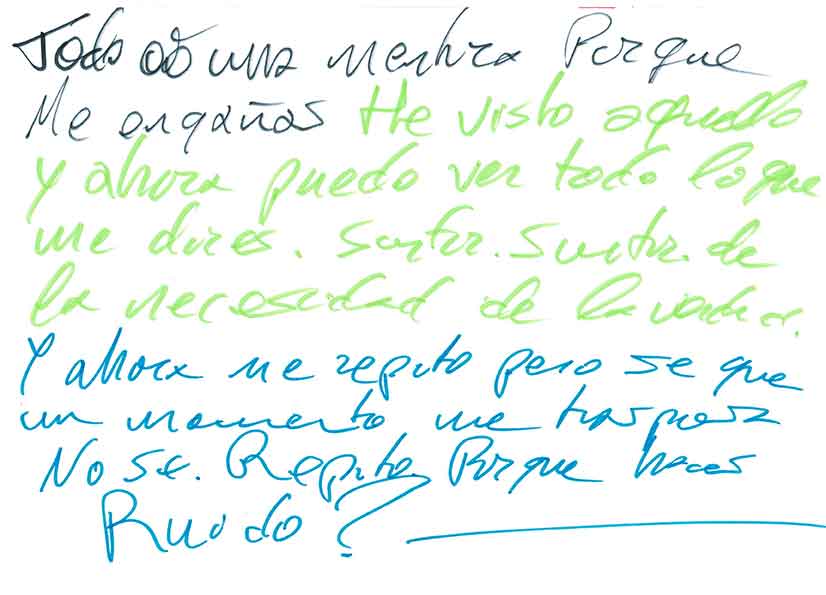 Todo es una mentira Porque
Me engañas He visto aquello
Y ahora puedo ver todo lo que
me dices. Surtir. Surtir. de
la necesidad de la
Y ahora me repito pero se que
un momento me traspasa
No se. Repito, Porque haces
Ruido?